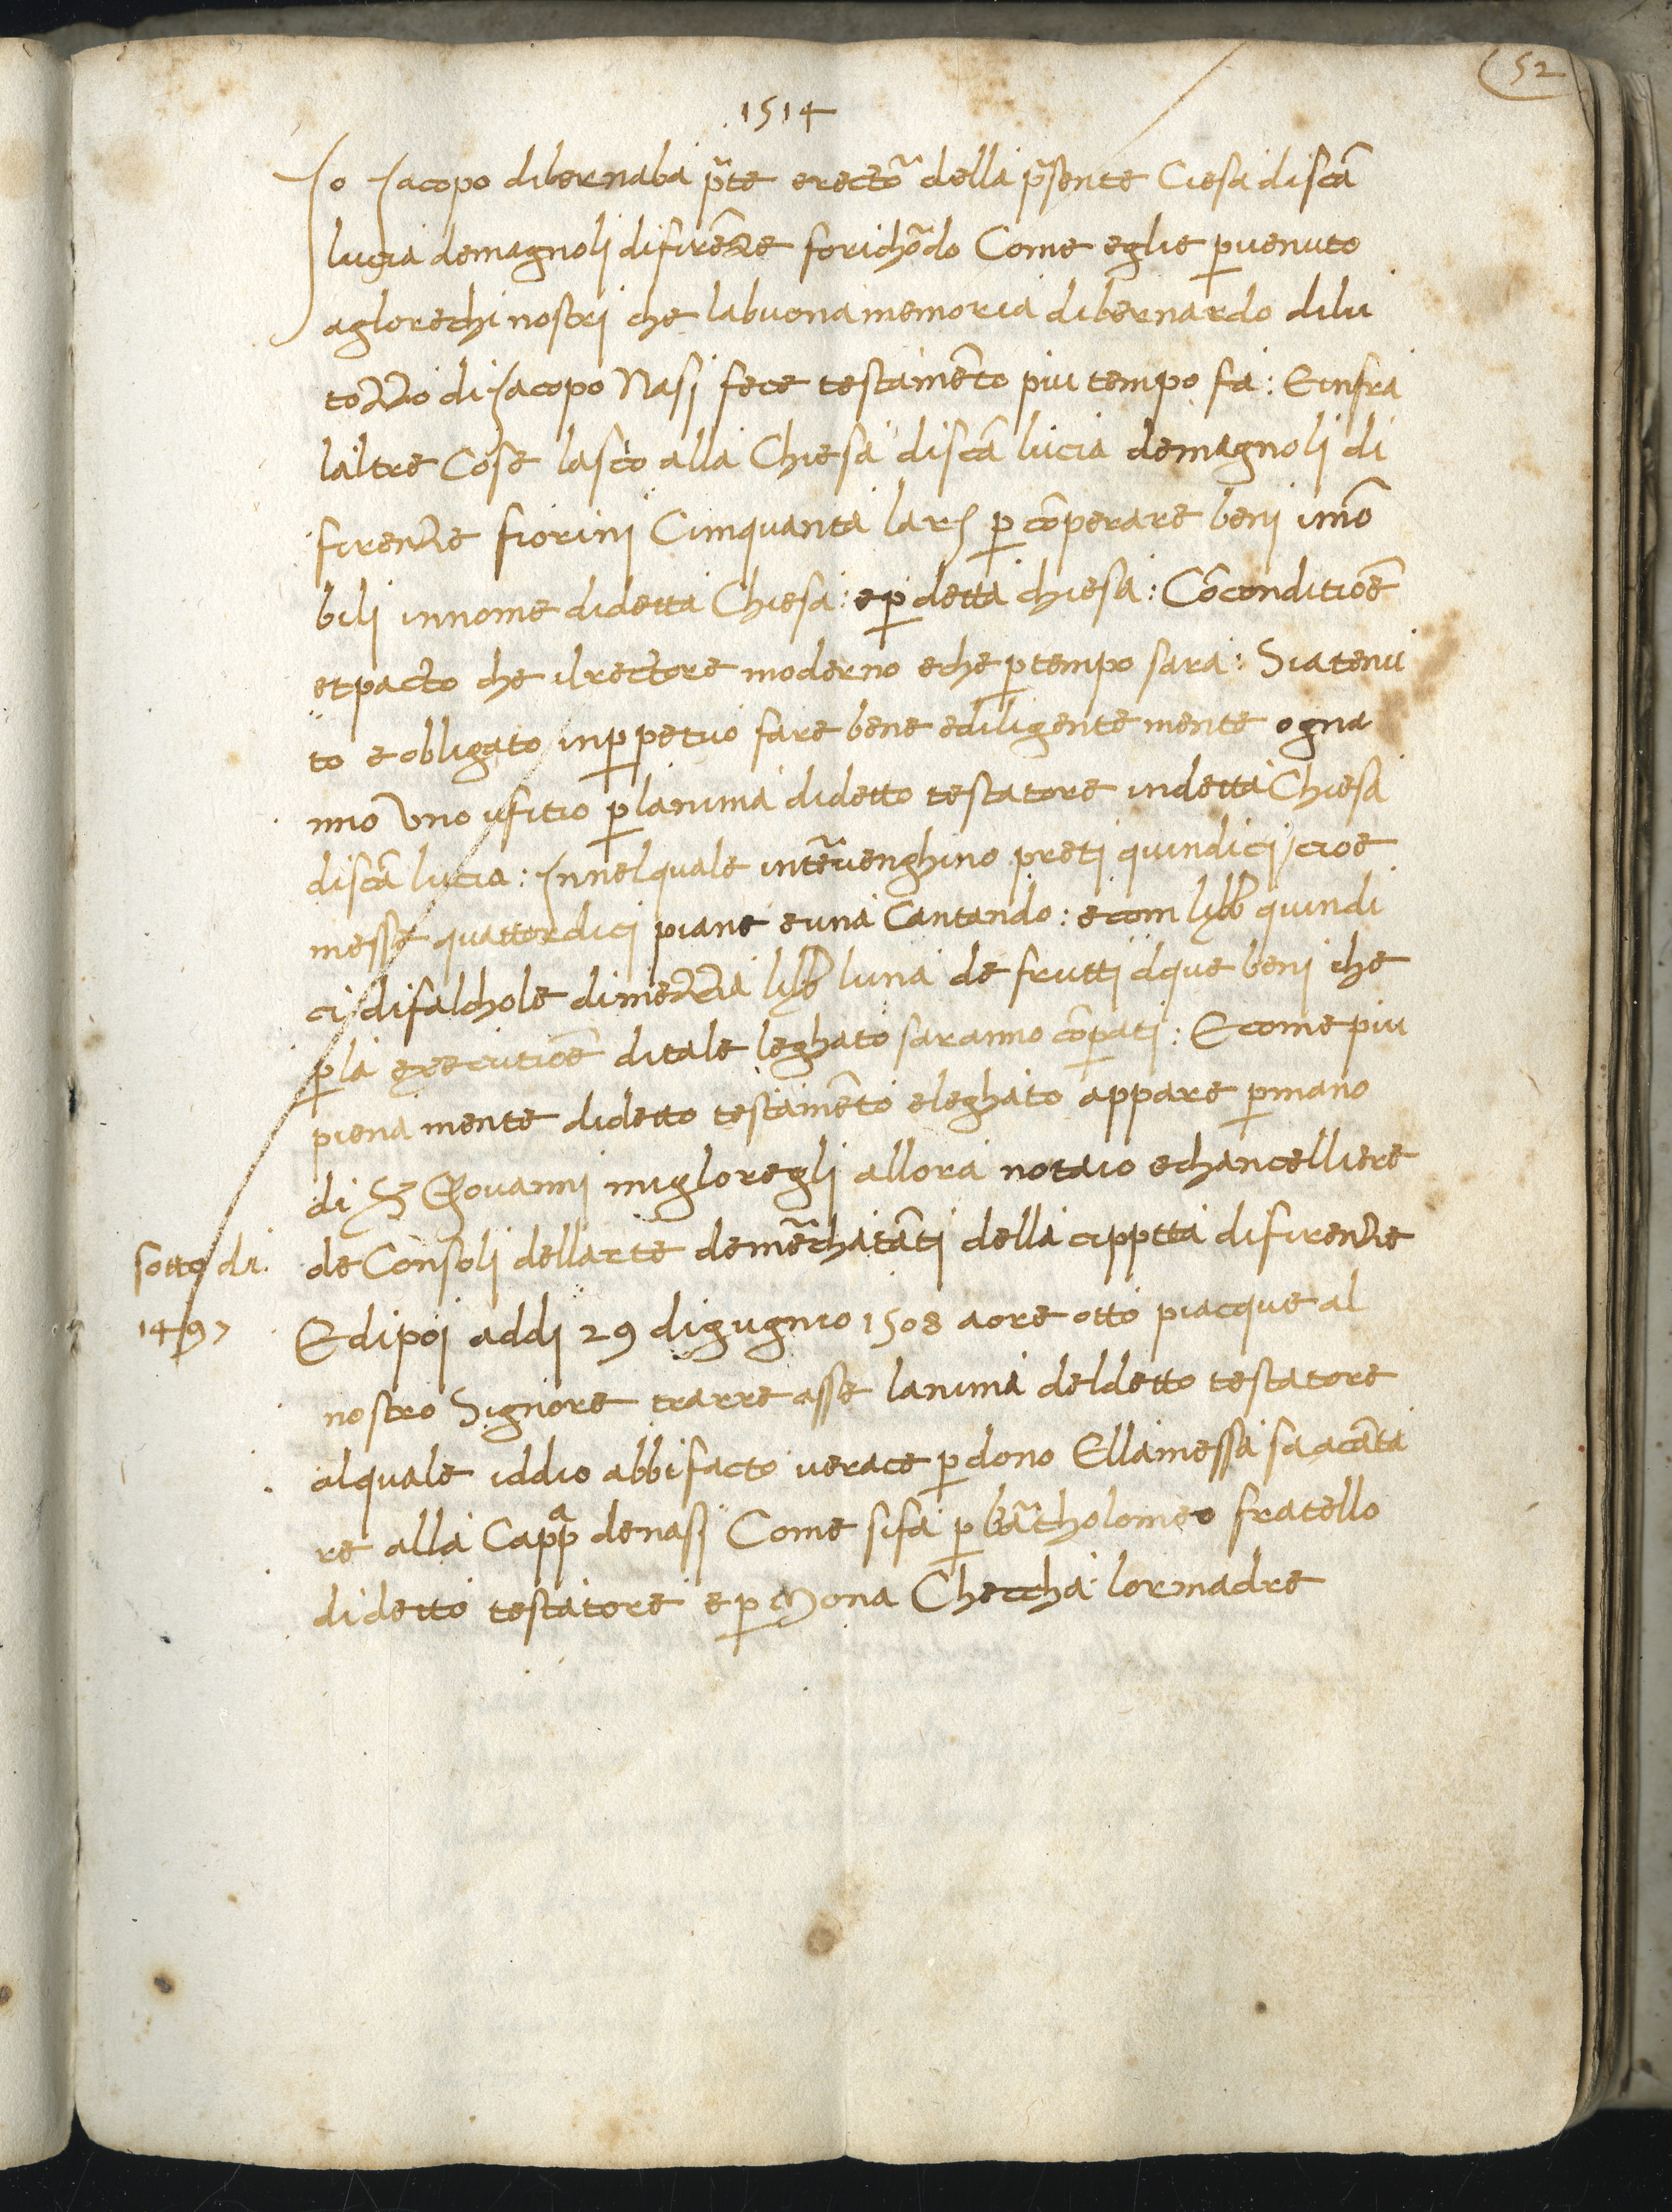 52
1514
Io Jacopo dibernaba p̃te erectõ della p̃sente Ciesa discã
lucia demagnoli difirẽze forichõdo Come eglie p̱uenuto
aglorechi nostri che labuona memoria dibernardo dilu
tozzo di Jacopo Nasi fece testamẽto piu tempo fa: Einfra
laltre Cose lascio alla Chiesa discã lucia demagnoli di
firenze fiorini Cinquanta larg p̱ cõperare beni imõ
bili innome didetta Chiesa: e p̱ detta chiesa: Cõconditiõe
et pacto che ilrectore moderno eche p̱ tempo sara: Sia tenu
to e obligato inp̱petuo fare bene ediligente mente ogna
nno Vno ufitio p̱ lanima didetto testatore indetta Chiesa
discã lucia: Innelquale intẽruenghino preti quindici / cioe
messe quattordici piane euna Cantando: ecom libb quindi
ci difalchole dimezza libb luna de frutti dque beni che
p̱ la executiõe ditale leghato saranno cõp̱ati: E come piu
piena mente didetto testamẽto eleghato appare p̱ mano
di Sr Giouanni migloregli allora notaio echancelliere
de Consoli dellarte demẽchatãti della cipptta difirenze
sotto di.
1497
E dipoi addi 29 digugnio 1508 aore otto piacque al
nostro Signore trarre asse lanima deldetto testatore
alquale iddio abbi facto uerace p̱dono Ella messa sa acãta
re alla Cappa denasi Come sifa p̱ bãtholomeo fratello
didetto testatore e p̱ Mona Checcha lor madre